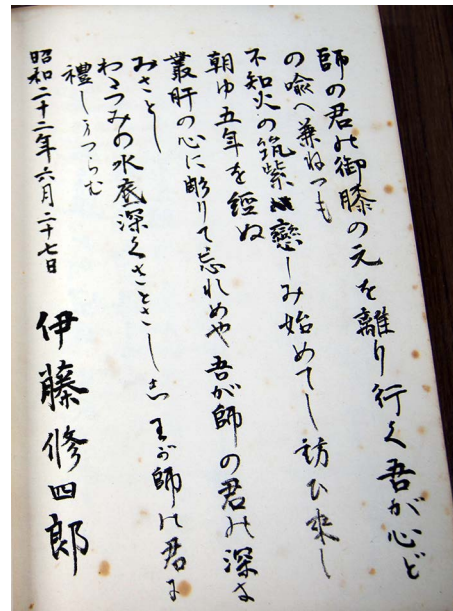 師の君の御膝の元を離り行く吾が心ど
の喩へ兼ねつも
不知火の筑紫戀しみ始めてし訪ひ来し
朝ゆ五年を經ぬ
叢肝の心に彫りて忘れめや吾が師の君の深き
みさとし
わたつみの水底深くさとさしし わが師の君に
禮し
昭和二十二年六月二十七日 伊藤修四郎